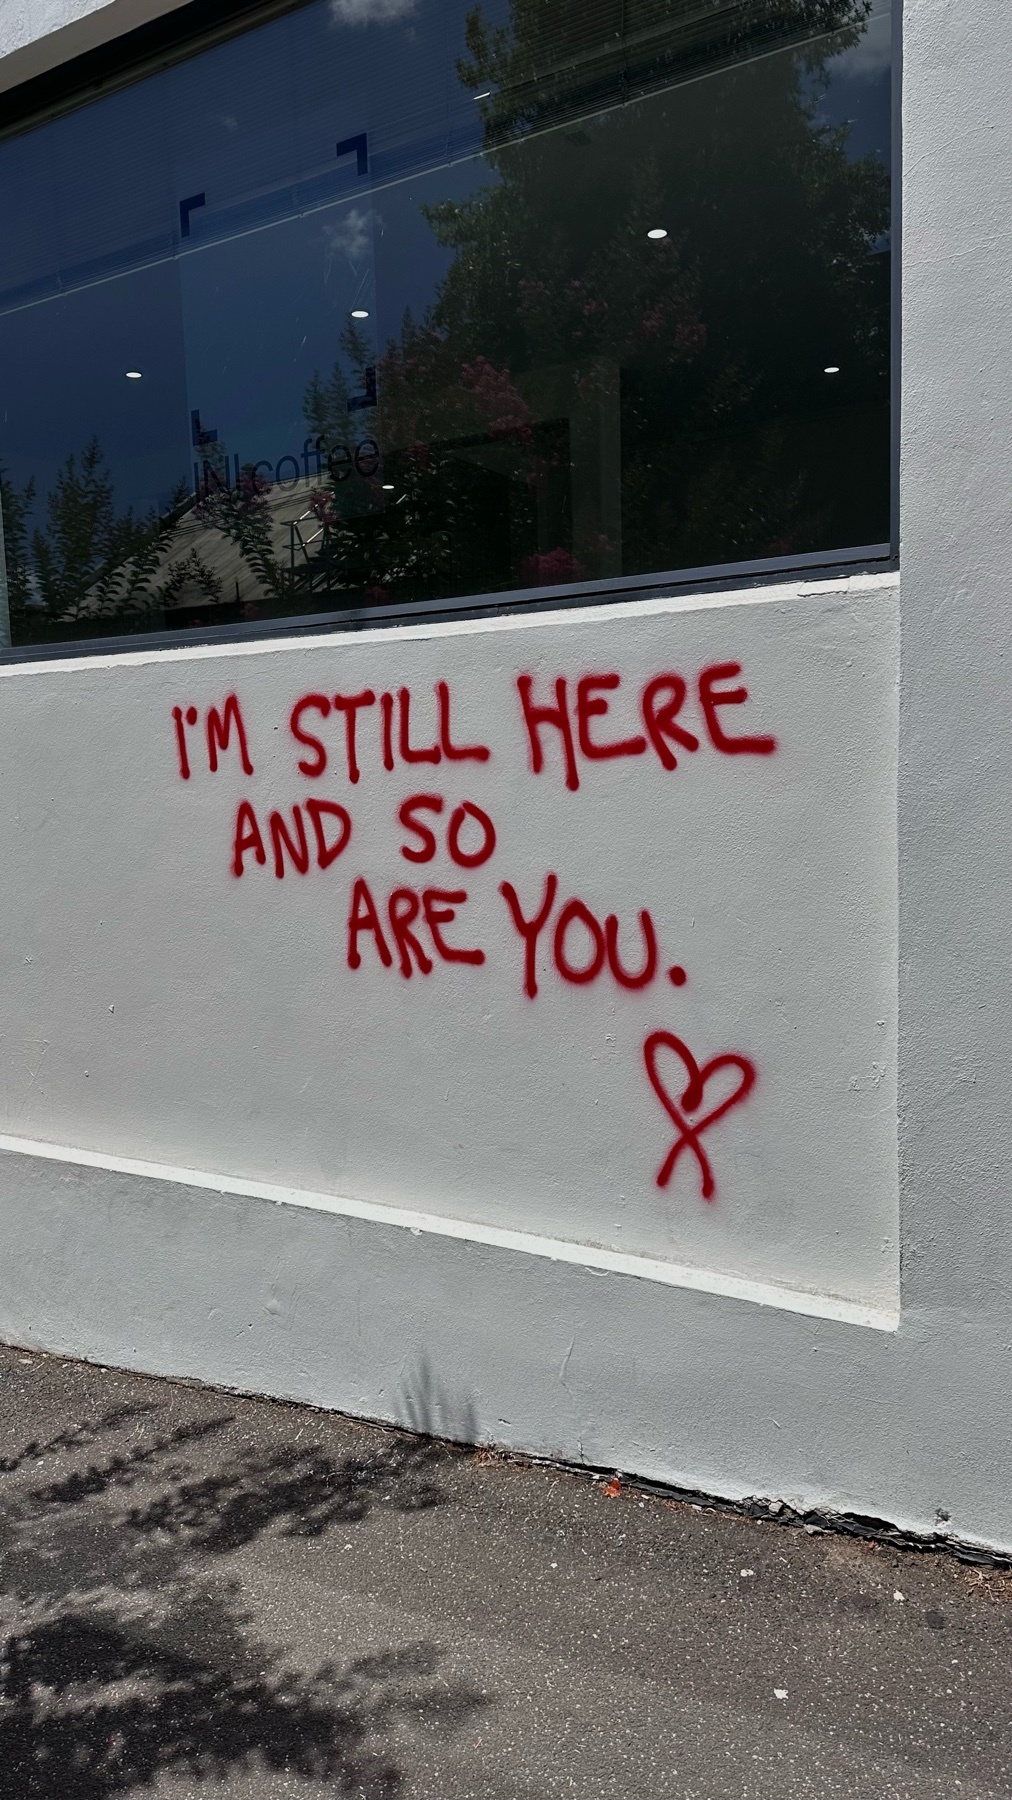 INI coffee
I'M STILL HERE
AND SO
ARE YOU.